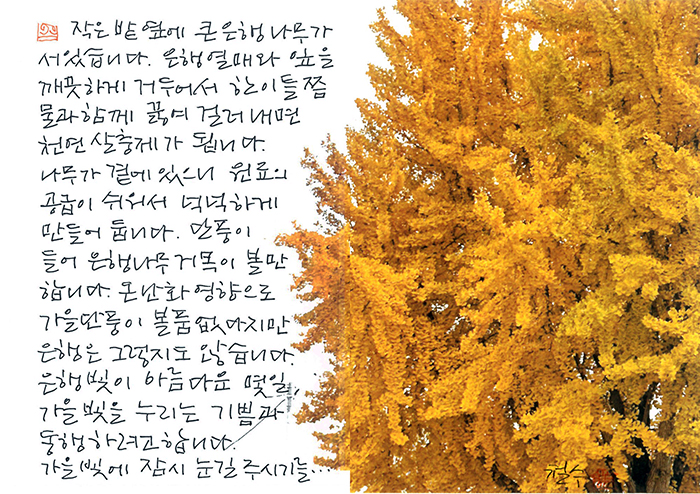 작은 밭 옆에 큰 은행나무가
서 있습니다. 은행열매와 잎을
깨끗하게 거두어서 한이틀쯤
물과 함께 끓여 걸러내면
천연 살충제가 됩니다.
나무가 곁에 있으니 원료의
공급이 쉬워서 넉넉하게
만들어 둡니다. 단풍이
들어 은행나무 거목이 볼만
합니다. 온난화 영향으로
가을단풍이 볼품 없다지만
은행은 그렇지도 않습니다.
은행빛이 아름다운 몇일,
가을빛을 누리는 기쁨과
동행하려고 합니다.
가을빛에 잠시 눈길 주시기를...
철수